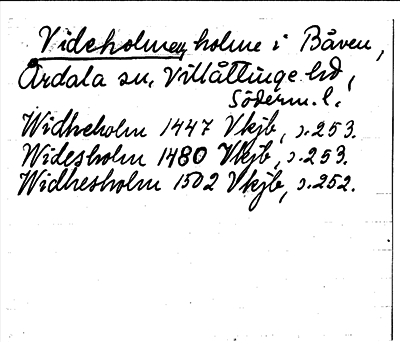 Videholmen, holme i Båven,
Årdala sn, Villåttinge hd,
Söderm. l.
Widheholm 1447 Vkjb, s. 253.
Widesholm 1480 Vkjb, s. 253.
Widhesholm 1502 Vkjb, s. 252.